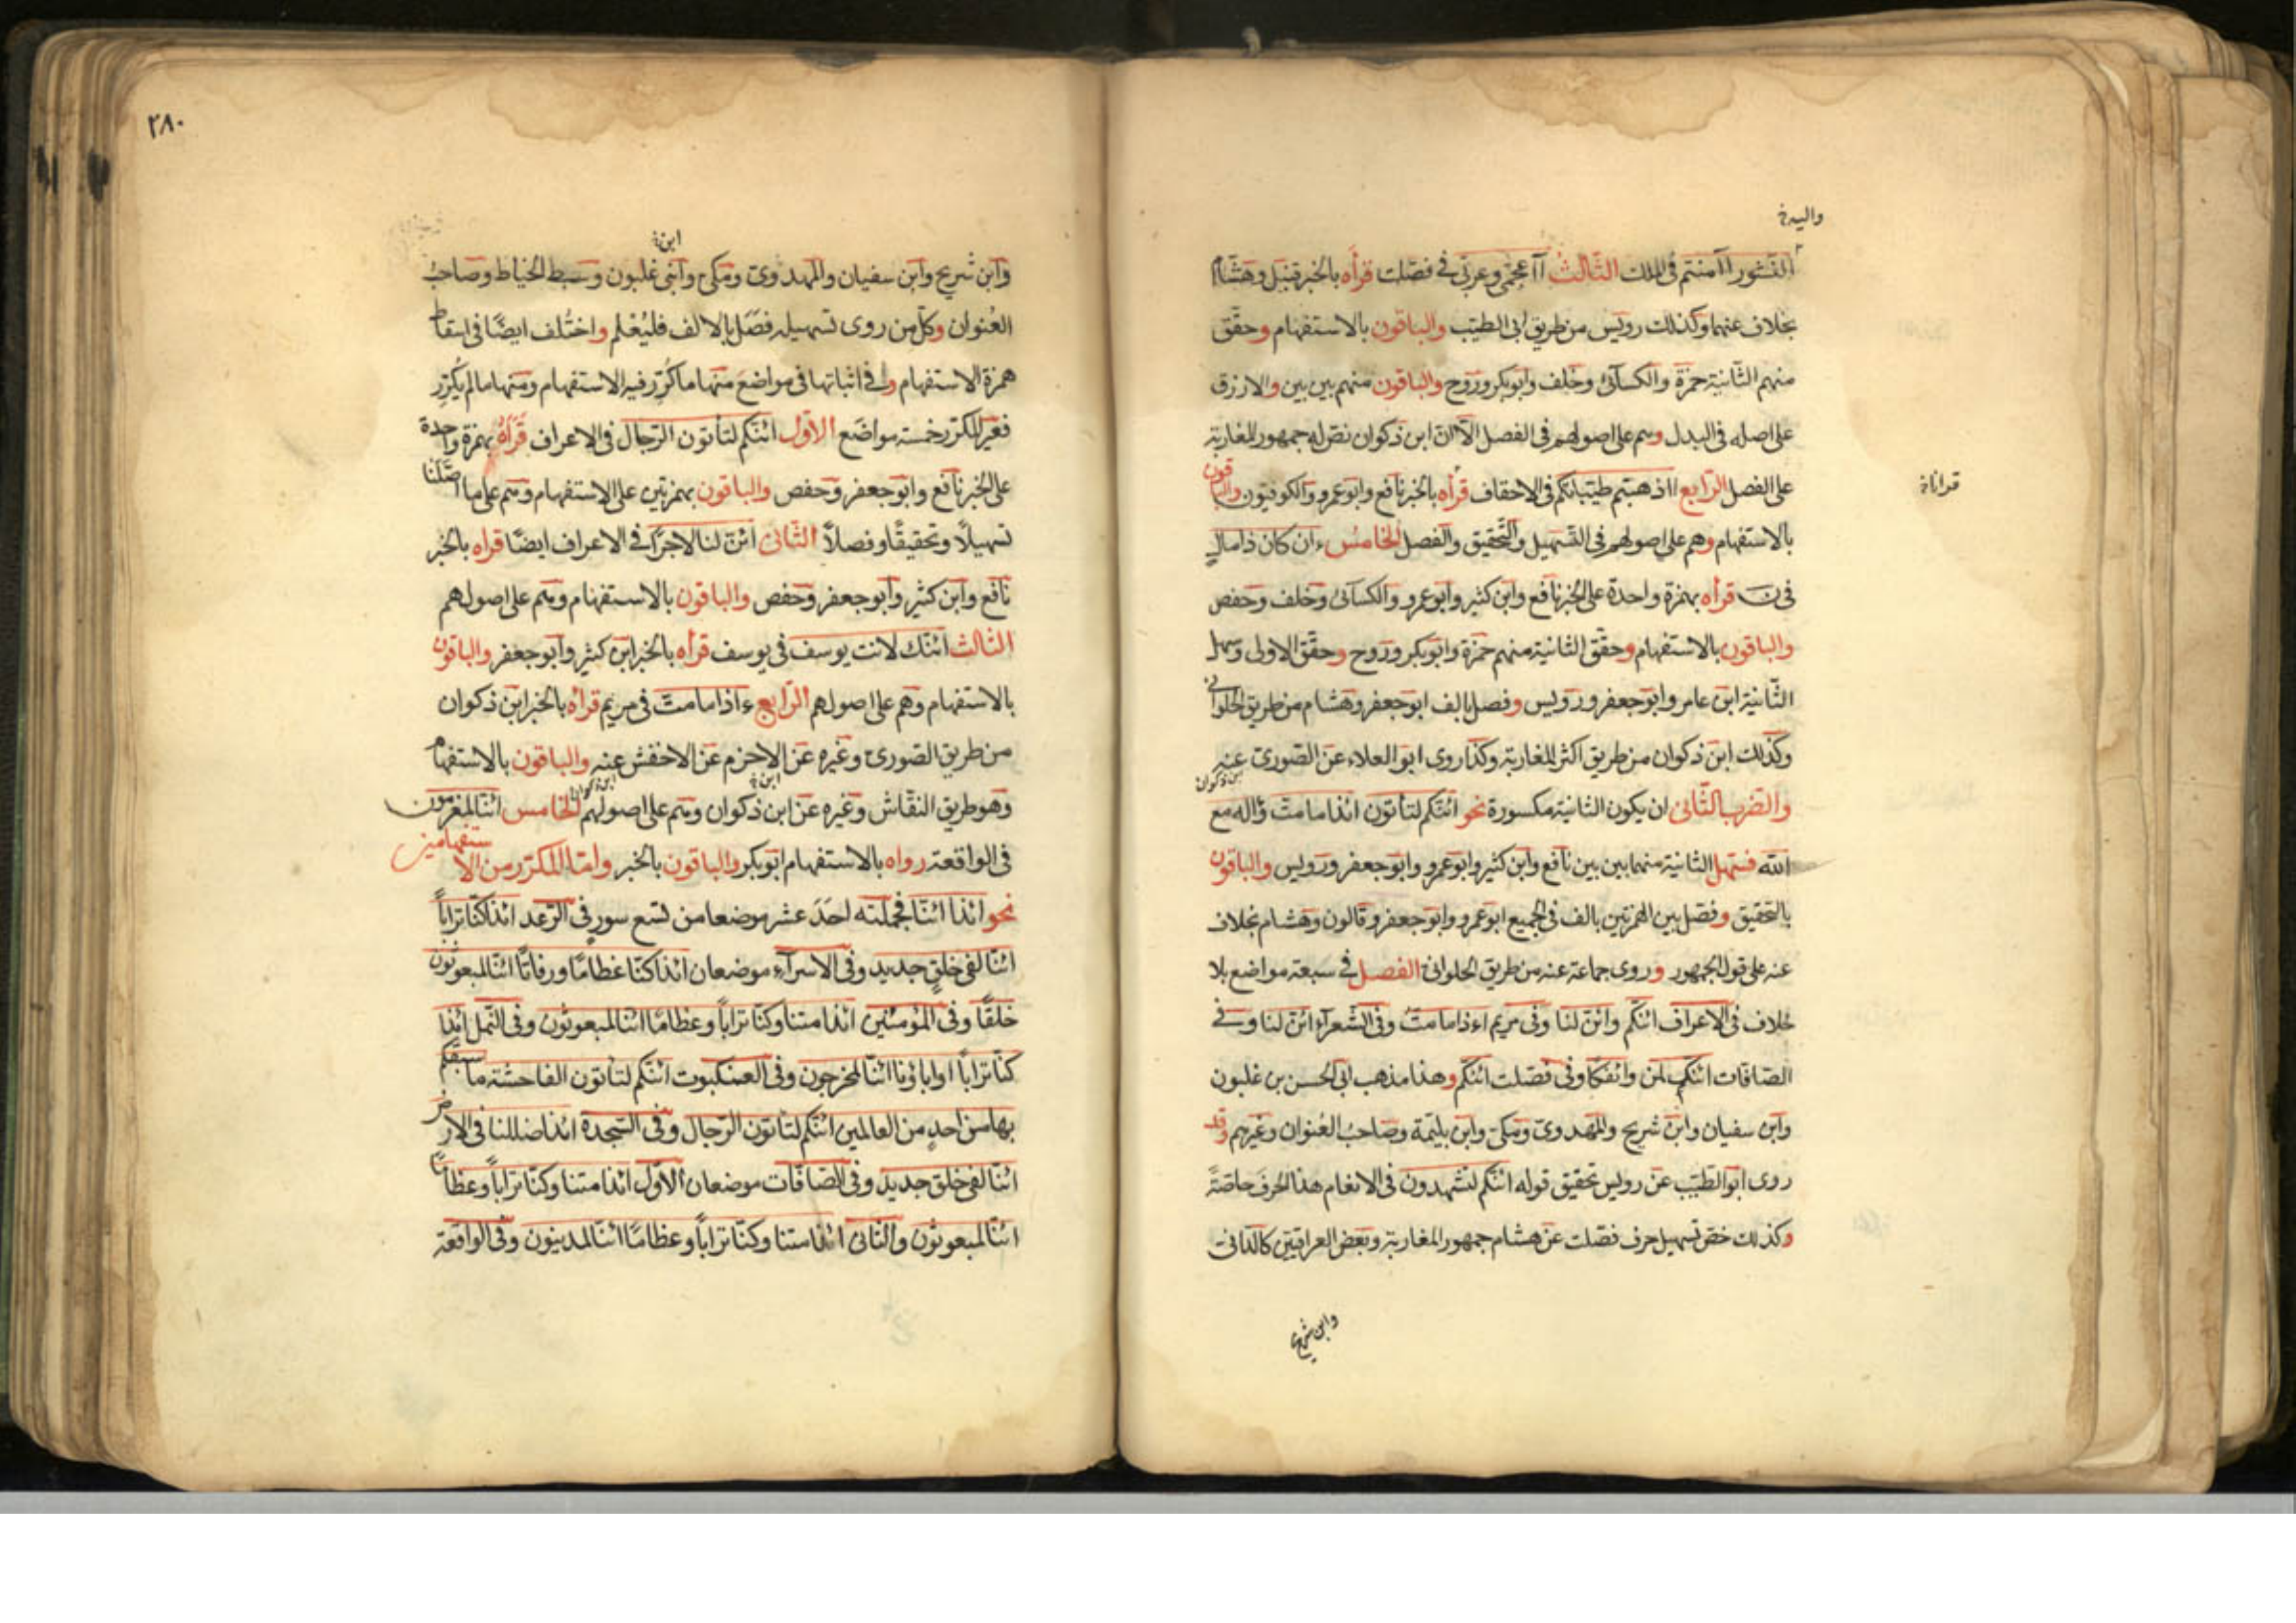 واليه خ
النشور أأمنتم فى الملك الثالث أأعجمى وعربى فى فصلت قرأه بالخبر قنبل وهشام
بخلاف عنهما وكذلك رويس من طريق ابى الطيب والباقون بالاستفهام وحقق
منهم الثانية حمزة والكسائى وخلف وابوبكر وروح والباقون منهم بين بين والازرق
على اصله فى البدل وهم على اصولهم فى الفصل الا ان ابن ذكوان نص له جمهور المغاربة
على الفصل الرابع ااذهبتم طيباتكم فى الاحقاف قرأه بالخبر نافع وابوعمرو والكوفيون والباقون
بالاستفهام وهم على اصولهم فى التسهيل والتحقيق والفصل الخامس ءان كان ذا مال
فى ن قرأه بهمزة واحدة على الخبر نافع وابن كثير وابوعمرو والكسائى وخلف وحفص
والباقون بالاستفهام وحقق الثانية منهم حمزة وابوبكر وروح وحقق الاولى وسهل
الثانية ابن عامر وابوجعفر ورويس وفصل بالف ابوجعفر وهشام من طريق الحلوانى
وكذلك ابن ذكوان من طريق اكثر المغاربة وكذا روى ابو العلاء عن الصورى عنه
ابن ذكوان
والضرب الثانى ان يكون الثانية مكسورة نحو ائنكم لتأتون ائذا ما مت واله مع
الله فسهل الثانية منهما بين بين نافع وابن كثير وابوعمرو وابوجعفر ورويس والباقون
بالتحقيق وفصل بين الهمزتين بالف فى الجميع ابوعمرو وابوجعفر وقالون وهشام بخلاف
عنه على قول الجمهور وروى جماعة عنه من طريق الحلوانى الفصل فى سبعة مواضع بلا
خلاف فى الاعراف ائنكم وائن لنا وفى مريم اءذا ما مت وفى الشعراء ائن لنا وفى
الصافات ائنكم لمن وائفكا وفى فصلت ائنكم وهذا مذهب ابى الحسن بن غلبون
وابن سفيان وابن شريح والمهدوى ومكى وابن بليمة وصاحب العنوان وغيرهم وقد
روى ابو الطيب عن رويس تحقيق قوله ائنكم لتشهدون فى الانعام هذا الحرف خاصة
وكذلك خص تسهيل حرف فصلت عن هشام جمهور المغاربة وبعض العراقيين كالدانى
وابن شريح
٢٨٠
ابن خ
وابن شريح وابن سفيان والمهدوى ومكى وابنى غلبون وسبط الخياط وصاحب
العنوان وكل من روى تسهيله فصل بالالف فليعلم واختلف ايضًا فى اسقاط
همزة الاستفهام وفى اثباتها فى مواضع منها ما كرر فيه الاستفهام ومنها ما لم يكرر
فغير المكرر خمسة مواضع الاول ائنكم لتأتون الرجال فى الاعراف قرأه بهمزة واحدة
على الخبر نافع وابوجعفر وحفص والباقون بهمزتين على الاستفهام وهم على ما اصلنا
تسهيلاً وتحقيقًا وفصلاً الثانى ائن لنا لاجرًا فى الاعراف ايضًا قراه بالخبر
نافع وابن كثير وابوجعفر وحفص والباقون بالاستفهام وهم على اصولهم
الثالث ائنك لانت يوسف فى يوسف قرأه بالخبر ابن كثير وابوجعفر والباقون
بالاستفهام وهم على اصولهم الرابع ءاذا ما مت فى مريم قرأه بالخبر ابن ذكوان
من طريق الصورى وغيره عن الاخرم عن الاخفش عنه والباقون بالاستفهام
وهو طريق النقاش وغيره عن ابن ذكوان وهم على اصولهم الخامس ائنا لمغرمون
فى الواقعة رواه بالاستفهام ابوبكر والباقون بالخبر واما المكرر من الاستفهامين
نحو ائذا ائنا فجملته احد عشر موضعا من تسع سور فى الرعد ائذا كنا ترابًا
ائنا لفى خلق جديد وفى الاسراء موضعان ائذا كنا عظامًا ورفاتًا ائنا لمبعوثون
خلقًا وفى المؤمنين ائذا متنا وكنا ترابًا وعظامًا ائنا لمبعوثون وفى النمل ائذا
كنا ترابًا اوابائونا ائنا لمخرجون وفى العنكبوت ائنكم لتأتون الفاحشة ما سبقكم
بها من احد من العالمين ائنكم لتأتون الرجال وفى السجدة ائذا ضللنا فى الارض
ائنا لفى خلق جديد وفى الصافات موضعان الاول ائذا متنا وكنا ترابًا وعظامًا
ائنا لمبعوثون والثانى ائذا متنا وكنا ترابًا وعظامًا ائنا لمدينون وفى الواقعة